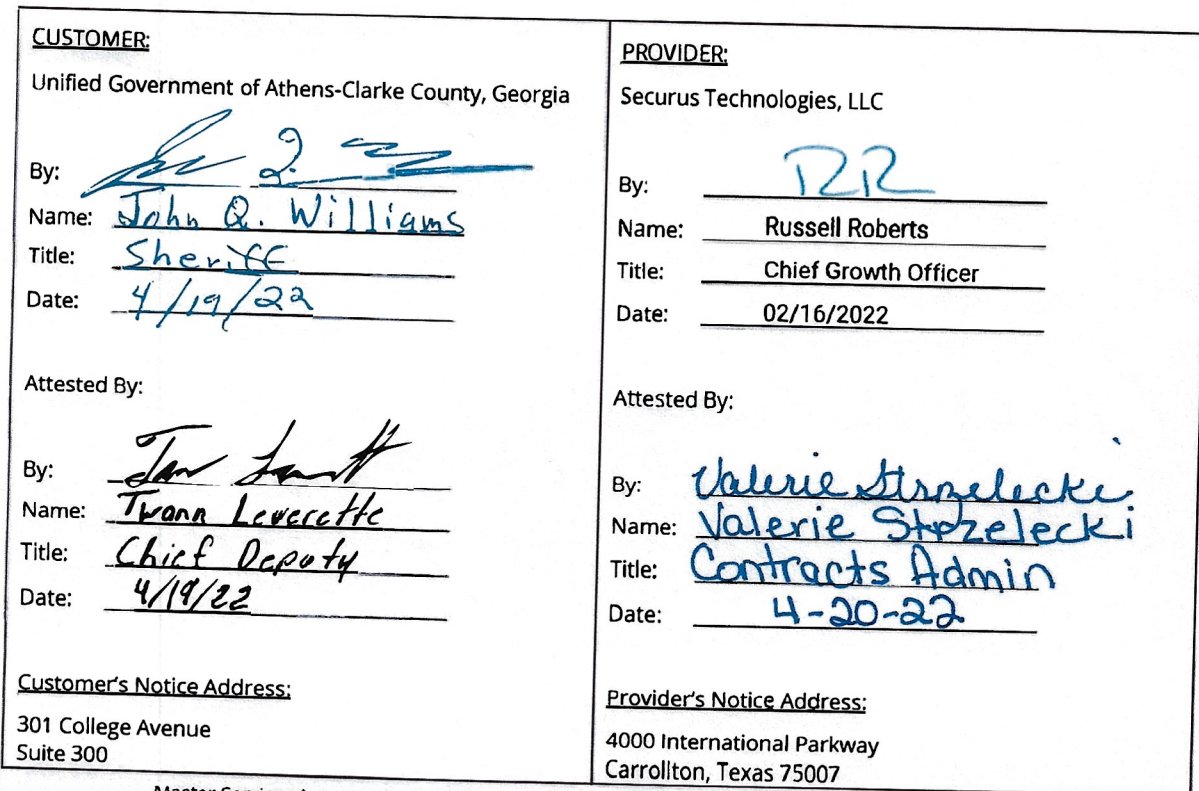 CUSTOMER:
Unified Government of Athens-Clarke County, Georgia
By:
Name: John Q. Williams
Title: Sheriff
Date: 4/19/22
Attested By:
By:
Name: Twann Leverette
Title: Chief Deputy
Date: 4/19/22
Customer's Notice Address:
301 College Avenue
Suite 300
PROVIDER:
Securus Technologies, LLC
By: RR
Name: Russell Roberts
Title: Chief Growth Officer
Date: 02/16/2022
Attested By:
By: Valerie Strzelecki
Name: Valerie Strzelecki
Title: Contracts Admin
Date: 4-20-22
Provider's Notice Address:
4000 International Parkway
Carrollton, Texas 75007